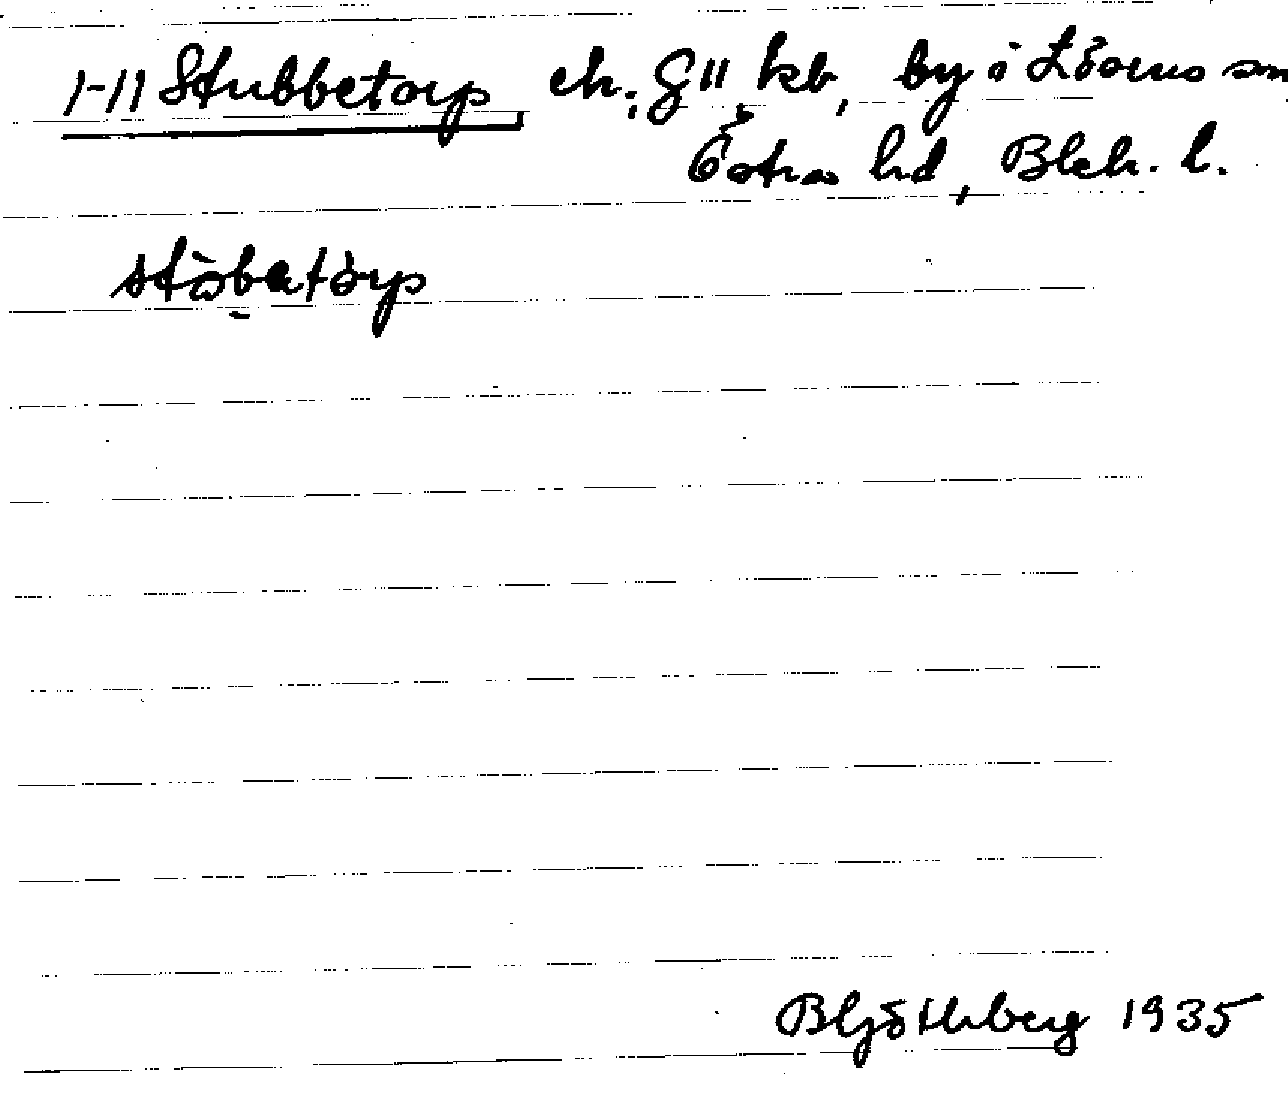 1-11 Stubbetorp ek. G11 kb, by i Lösens sn,
Östra hd, Blek. l.
stòbatòrp
B Ljöthberg 1935